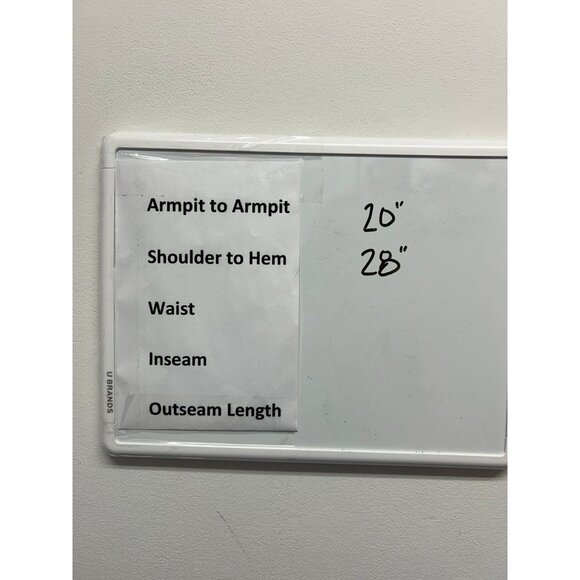 Armpit to Armpit 20"
Shoulder to Hem 28"
Waist
Inseam
Outseam Length
U BRANDS